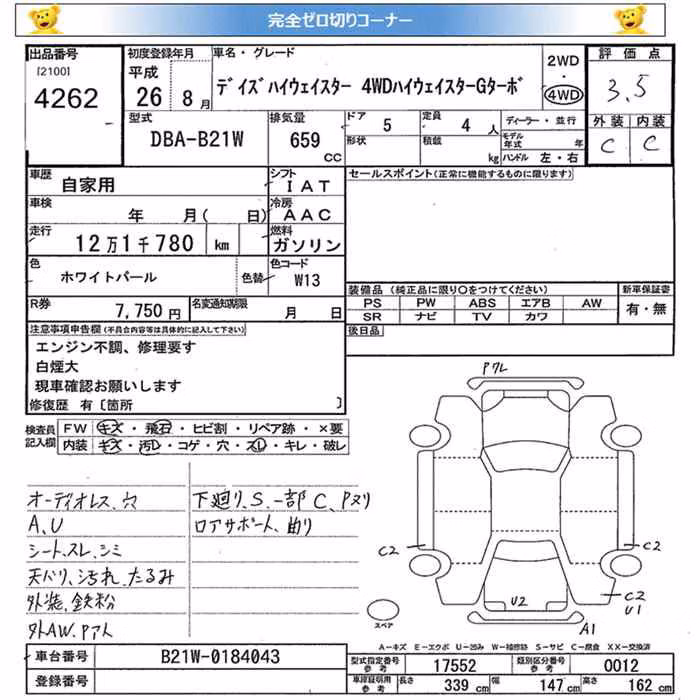 完全ゼロ切りコーナー
出品番号
[2100]
4262
初度登録年月
平成
26 8月
車名・グレード
デイズハイウェイスター 4WDハイウェイスターGターボ
2WD
・
4WD
評価点
3.5
外装 内装
C C
型式
DBA-B21W
排気量
659
CC
ドア 5
定員 4人
ディーラー・並行
形状
積載
kg
モデル年式 年
ハンドル 左・右
車歴
自家用
シフト
IAT
車検
年 月( 日)
冷房
AAC
走行
12万1千780 km
燃料
ガソリン
色
ホワイトパール
色替
色コード
W13
R券
7,750円
名変通知期限
月 日
セールスポイント(正常に機能するものに限ります)
装備品 (純正品に限り○をつけてください)
PS PW ABS エアB AW
SR ナビ TV カワ
新車保証書
有・無
後日品
注意事項申告欄(不具合内容等は具体的に記入して下さい)
エンジン不調、修理要す
白煙大
現車確認お願いします
修復歴 有〔箇所 〕
検査員
記入欄
FW キズ・飛石・ヒビ割・リペア跡・×要
内装 キズ・汚レ・コゲ・穴・スレ・キレ・破レ
オーディオレス、穴
A、U
シート、スレ、シミ
天バリ、汚れ、たるみ
外装、鉄粉
外AW、Pアト
下廻り、S、一部C、Pヌリ
ロアサポート、曲り
Pクレ
C2
C2
C2
U1
U2
A1
スペア
A-キズ E-エクボ U-凹み W-補修跡 S-サビ C-腐食 XX-交換済
車台番号
B21W-0184043
登録番号
型式指定番号
参考
17552
類別区分番号
参考
0012
車庫証明用
参考
長さ 339 cm
幅 147 cm
高さ 162 cm